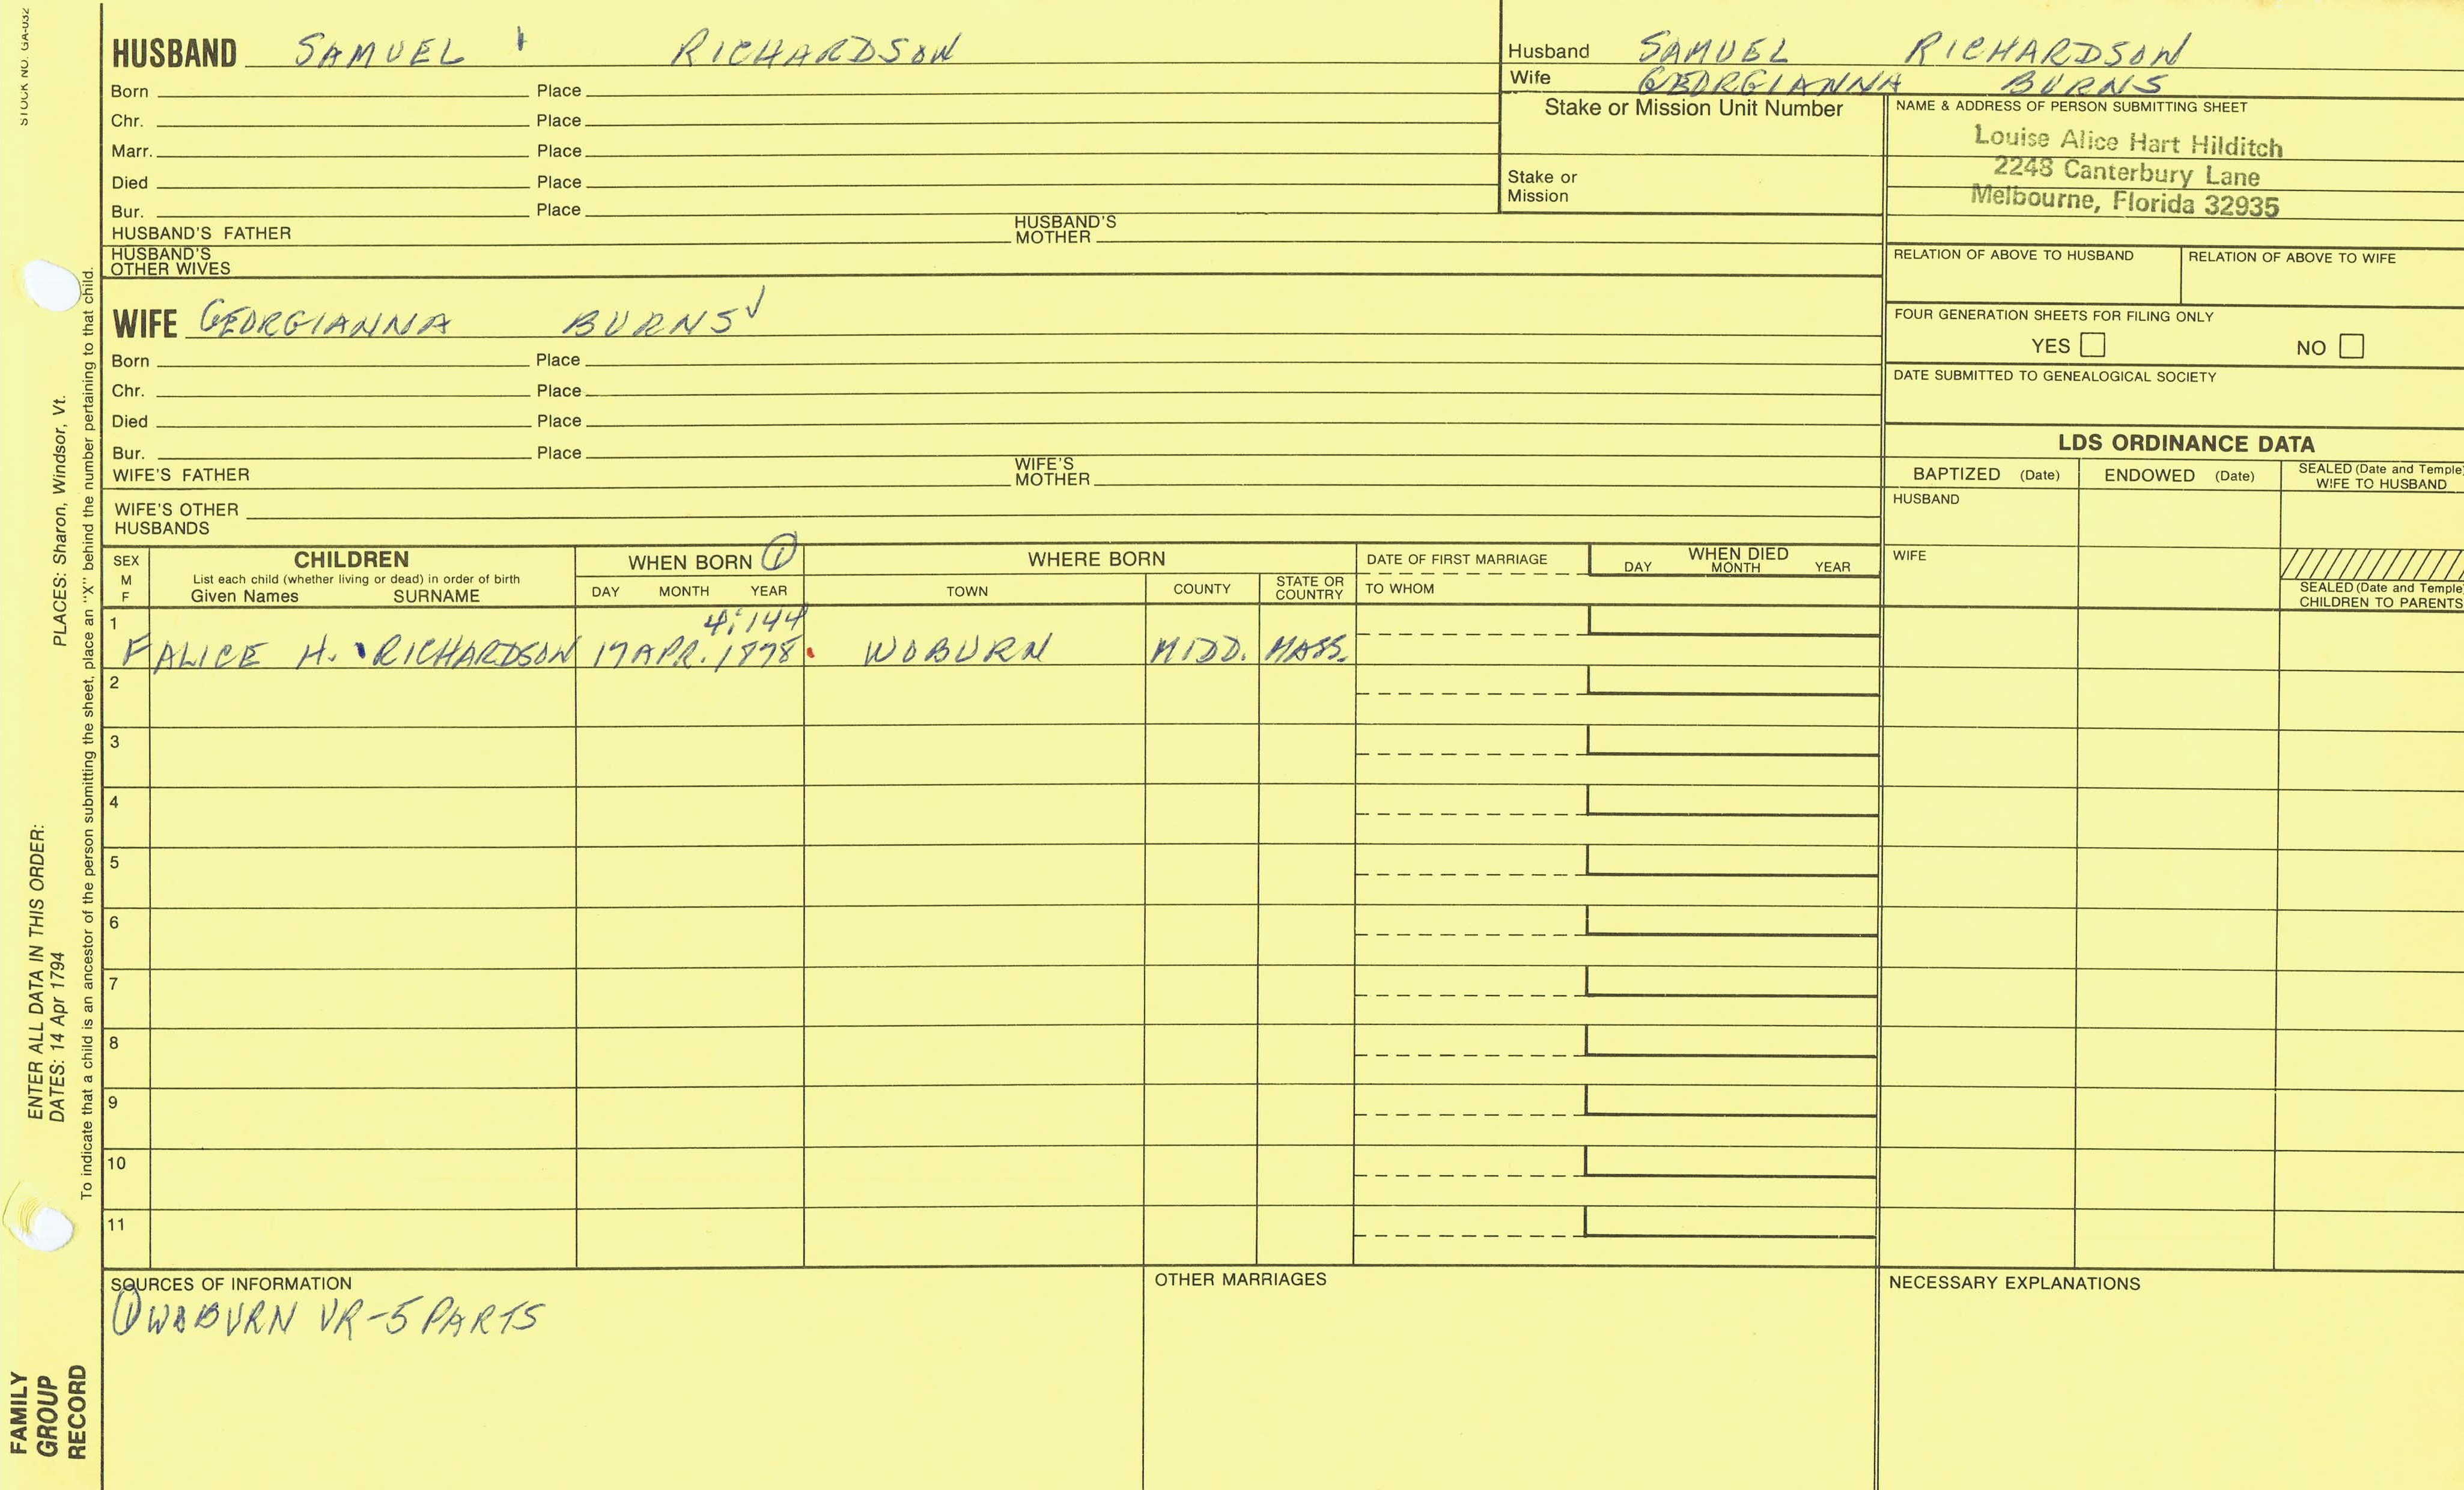 STOCK NO. GA-032
HUSBAND SAMUEL RICHARDSON
Born Place
Chr. Place
Marr. Place
Died Place
Bur. Place
HUSBAND'S FATHER HUSBAND'S MOTHER
HUSBAND'S OTHER WIVES
WIFE GEORGIANNA BURNS ✓
Born Place
Chr. Place
Died Place
Bur. Place
WIFE'S FATHER WIFE'S MOTHER
WIFE'S OTHER HUSBANDS
Husband SAMUEL RICHARDSON
Wife GEORGIANNA BURNS
Stake or Mission Unit Number
Stake or Mission
NAME & ADDRESS OF PERSON SUBMITTING SHEET
Louise Alice Hart Hilditch
2248 Canterbury Lane
Melbourne, Florida 32935
RELATION OF ABOVE TO HUSBAND RELATION OF ABOVE TO WIFE
FOUR GENERATION SHEETS FOR FILING ONLY
YES NO
DATE SUBMITTED TO GENEALOGICAL SOCIETY
LDS ORDINANCE DATA
BAPTIZED (Date) ENDOWED (Date) SEALED (Date and Temple) WIFE TO HUSBAND
HUSBAND
WIFE
SEALED (Date and Temple) CHILDREN TO PARENTS
SEX M F CHILDREN WHEN BORN ① WHERE BORN DATE OF FIRST MARRIAGE WHEN DIED
List each child (whether living or dead) in order of birth
Given Names SURNAME DAY MONTH YEAR TOWN COUNTY STATE OR COUNTRY TO WHOM DAY MONTH YEAR
4:144
1 F ALICE H. RICHARDSON 17 APR. 1878. WOBURN MIDD. MASS.
2
3
4
5
6
7
8
9
10
11
SOURCES OF INFORMATION
① WOBURN VR-5 PARTS
OTHER MARRIAGES
NECESSARY EXPLANATIONS
ENTER ALL DATA IN THIS ORDER:
DATES: 14 Apr 1794 PLACES: Sharon, Windsor, Vt.
To indicate that a child is an ancestor of the person submitting the sheet, place an "X" behind the number pertaining to that child.
FAMILY
GROUP
RECORD